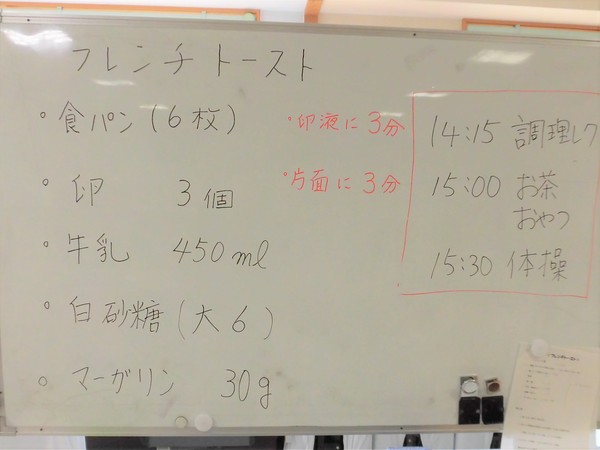 フレンチトースト
・食パン(6枚)
・卵 3個
・牛乳 450ml
○白砂糖(大6)
○マーガリン 30g
・卵液に3分
・片面に3分
14:15 調理レク
15:00 お茶
おやつ
15:30 体操